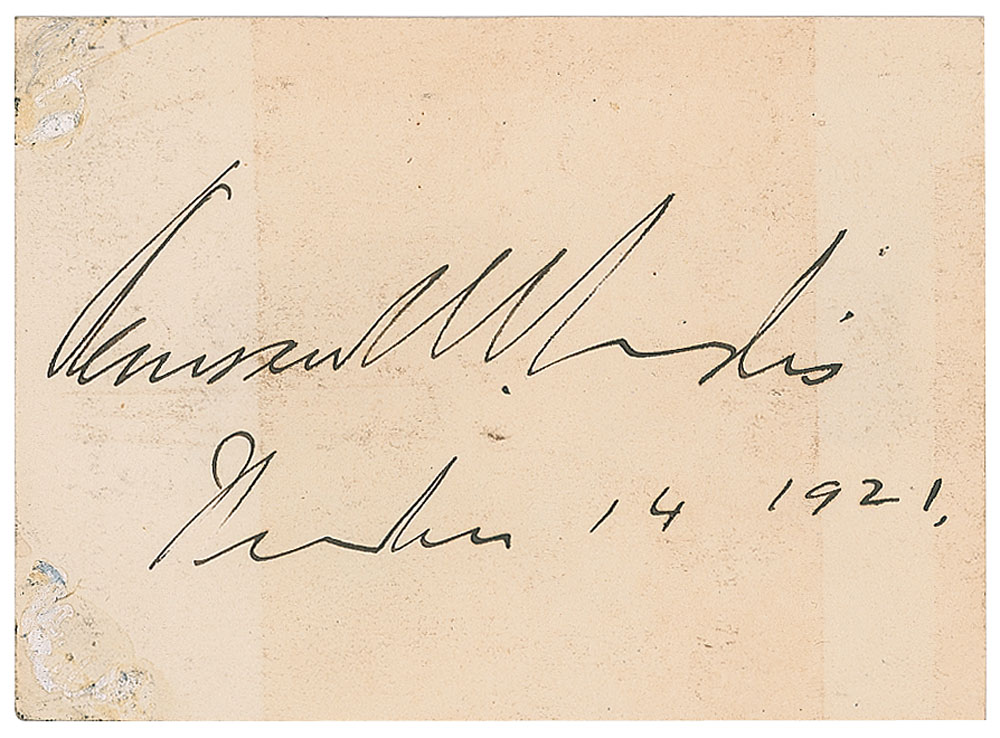 Kenesaw M. Landis
November 14 1921.